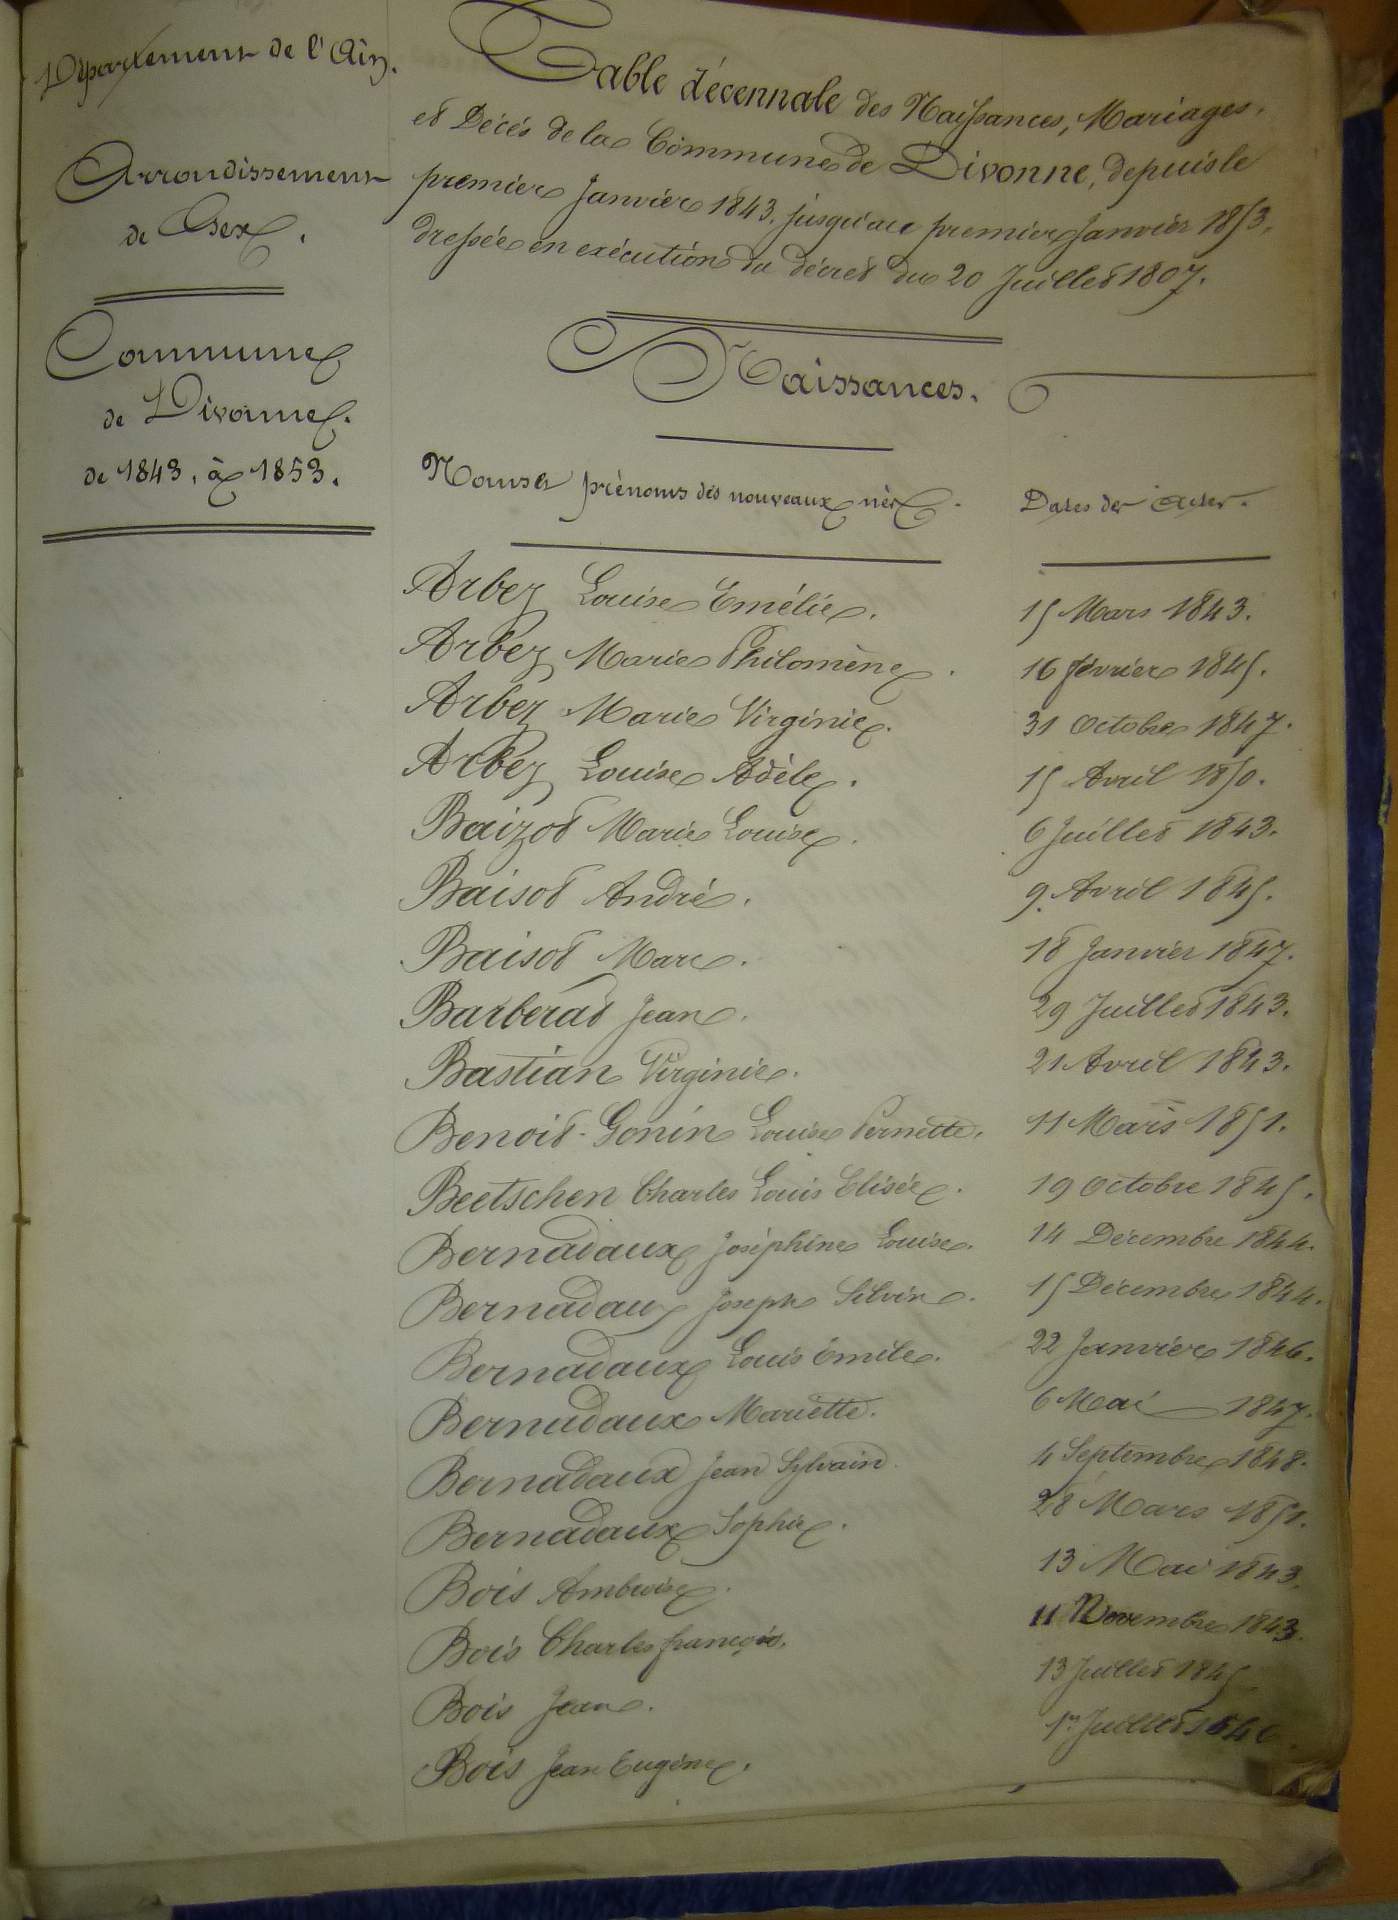 Département de l'Ain.
Arrondissement
de Gex.
Commune
de Divonne.
de 1843, à 1853.
Table décennale des Naissances, Mariages,
et Décès de la Commune de Divonne, depuis le
premier Janvier 1843, jusqu'au premier Janvier 1853,
dressée en exécution du décret du 20 Juillet 1807.
Naissances.
Noms et prénoms des nouveaux nés. Dates des Actes.
Arbez Louise Emélie. 15 Mars 1843.
Arbez Marie Philomène. 16 février 1845.
Arbez Marie Virginie. 31 Octobre 1847.
Arbez Louise Adèle. 15 Avril 1850.
Baizot Marie Louise. 6 Juillet 1843.
Baisot André. 9. Avril 1845.
Baisot Marc. 18 Janvier 1847.
Barberat Jean. 29 Juillet 1843.
Bastian Virginie. 21 Avril 1843.
Benoit-Gonin Louise Pernette. 11 Mars 1851.
Beetschen Charles Louis Elisée. 19 Octobre 1845.
Bernadaux Joséphine Louise. 14 Décembre 1844.
Bernadaux Joseph Silvin. 15 Décembre 1844.
Bernadaux Louis émile. 22 Janvier 1846.
Bernadaux Mariette. 6 Mai 1847.
Bernadaux Jean Sylvain. 4 Septembre 1848.
Bernadaux Sophie. 28 Mars 1851.
Bois Ambroise. 13 Mai 1843.
Bois Charles françois. 11 Novembre 1843.
Bois Jean. 13 Juillet 1845
Bois Jean Eugène. 1er Juillet 1846.